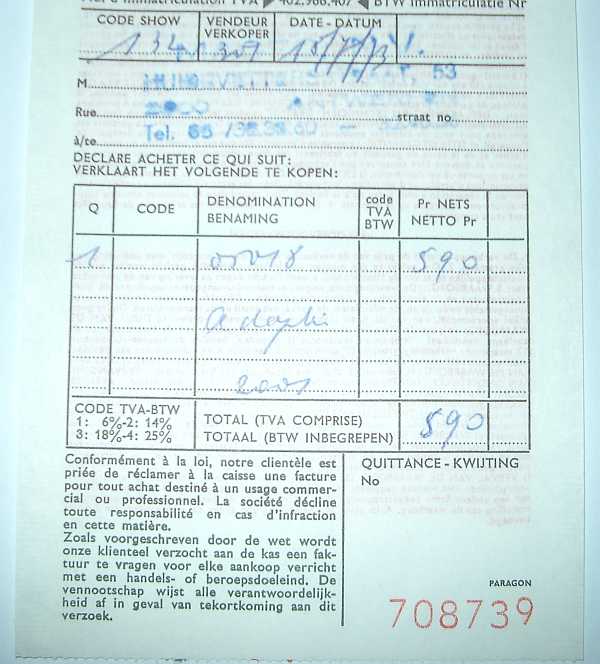 402.966.407 BTW Immatriculatie Nr
CODE SHOW VENDEUR VERKOPER DATE - DATUM
134 309
M. 53
Rue straat no.
Tel.
à/te
DECLARE ACHETER CE QUI SUIT:
VERKLAART HET VOLGENDE TE KOPEN:
Q CODE DENOMINATION BENAMING code TVA BTW Pr NETS NETTO Pr
1 590
CODE TVA-BTW
1: 6%-2: 14%
3: 18%-4: 25%
TOTAL (TVA COMPRISE)
TOTAAL (BTW INBEGREPEN) 590
Conformément à la loi, notre clientèle est
priée de réclamer à la caisse une facture
pour tout achat destiné à un usage commer-
cial ou professionnel. La société décline
toute responsabilité en cas d'infraction
en cette matière.
Zoals voorgeschreven door de wet wordt
onze klienteel verzocht aan de kas een fak-
tuur te vragen voor elke aankoop verricht
met een handels- of beroepsdoeleind. De
vennootschap wijst alle verantwoordelijk-
heid af in geval van tekortkoming aan dit
verzoek.
QUITTANCE - KWIJTING
No
PARAGON
708739